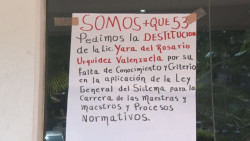 SOMOS +QUE 53
Pedimos la DESTITUCION
de la Lic. Yara del Rosario
Urquidez Valenzuela por su
Falta de Conocimiento y Criterio
en la aplicación de la Ley
General del Sistema para la
Carrera de las Maestras y
maestros y Procesos
Normativos.